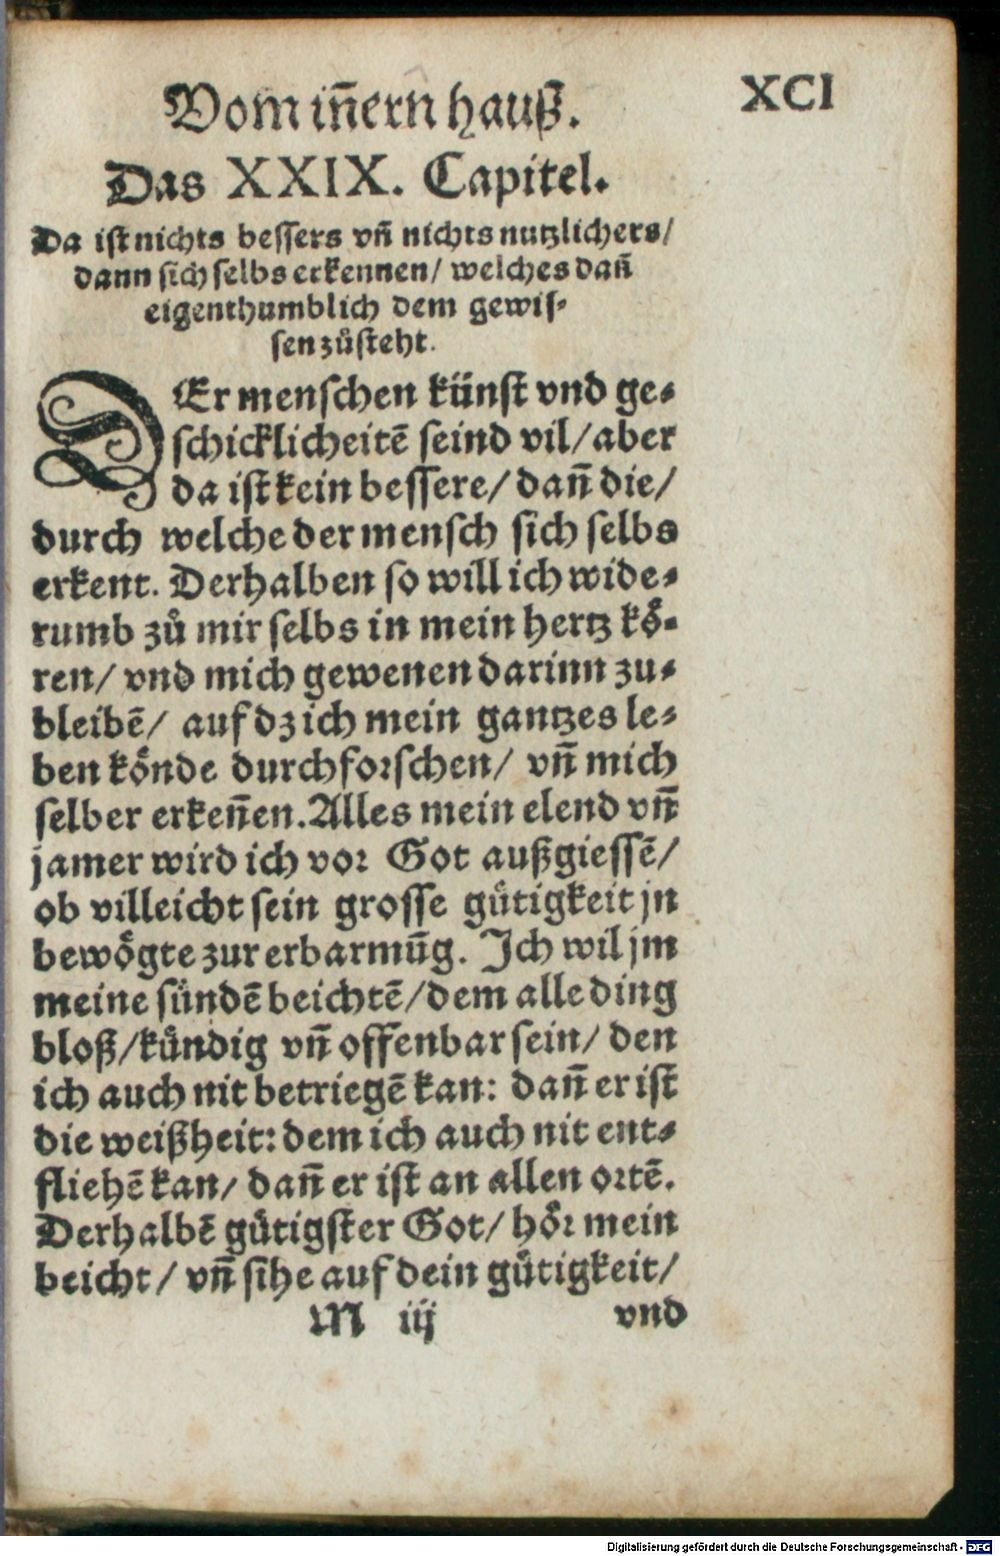 Vom iñern hauß.
XCI
Das XXIX. Capitel.
Da ist nichts bessers vñ nichts nutzlichers/
dann sich selbs erkennen/ welches dañ
eigenthumblich dem gewis-
sen zůsteht.
DEr menschen künst vnd ge-
schicklicheitē seind vil/ aber
da ist kein bessere/ dañ die/
durch welche der mensch sich selbs
erkent. Derhalben so will ich wide-
rumb zů mir selbs in mein hertz kö-
ren/ vnd mich gewenen darinn zu-
bleibē/ auf dz ich mein gantzes le-
ben könde durchforschen/ vñ mich
selber erkeñen. Alles mein elend vñ
jamer wird ich vor Got außgiessē/
ob villeicht sein grosse gütigkeit jn
bewögte zur erbarmūg. Ich wil jm
meine sündē beichtē/ dem alle ding
bloß/ kündig vñ offenbar sein/ den
ich auch nit betriegē kan: dañ er ist
die weißheit: dem ich auch nit ent-
fliehē kan/ dañ er ist an allen ortē.
Derhalbē gütigster Got/ hör mein
beicht/ vñ sihe auf dein gütigkeit/
M iij
vnd
Digitalisierung gefördert durch die Deutsche Forschungsgemeinschaft - DFG